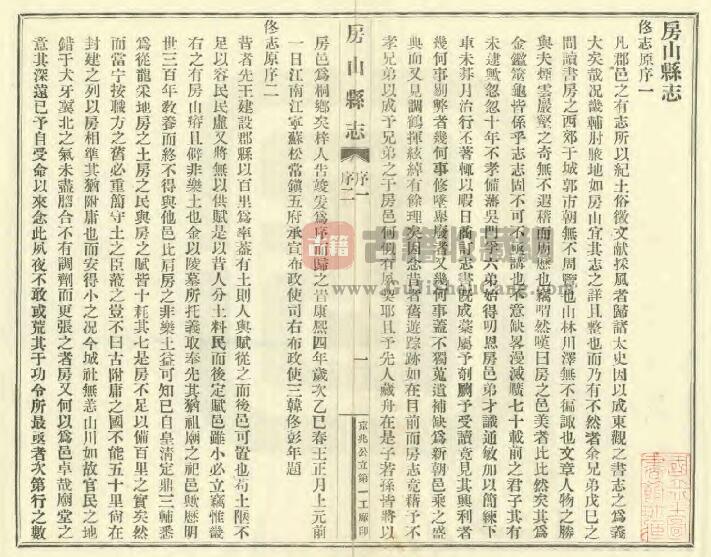 房山縣志
修志原序一
凡郡邑之有志所以紀土俗徵文獻採風者歸諸太史因以成東觀之書志之爲義
大矣哉况畿輔肘腋地如房山宜其志之詳且整也而乃有不然者余兄弟戊巳之
間讀書房之西郊于城郭市朝無不周覽也山林川澤無不徧諏也文章人物之勝
與夫煙雲巖壑之奇無不遐稽而周歷也竊喟然嘆曰房之邑美者比比然矣其爲
金鑑蓍龜皆係乎志志固不可不亟講也不意缺畧漫滅廣七十載前之君子其有
未逮歟忽忽十年不孝備藩吳門學六弟始得叨恩房邑弟才識通敏加以簡練下
車未朞月治行丕著輒以暇日商訂志書旣成藁屬予剞劂予受讀竟見其興利者
幾何事剔弊者幾何事修墜舉廢者又幾何事蓋不獨蒐遺補缺爲新朝邑乘之盛
典而又見調鶴揮絃綽有餘理矣因念昔者舊遊踪跡如在目前而房志竟藉予不
孝兄弟以成予兄弟之于房邑何
有夙
耶且予先人藏舟在是子若孫皆將以
房山縣志
序一
序二
一
京兆公立第一工廠印
房邑爲桐鄉矣梓人告竣爰爲序
歸之
康熙四年歲次乙巳春王正月上元前
一日江南江寧蘇松常鎭五府承宣布政使司右布政使三韓佟彭年題
修志原序二
昔者先王建設郡縣以百里爲率蓋有土則人與賦從之而後邑可置也苟土陿不
足以容民民虛又將無以供賦是以昔人分土料民而後定賦邑雖小必立竊惟畿
右之有房山瘠且僻非樂土也金以陵墓所托義取奉先其猶祖廟之祀邑歟歷明
世三百年敎養而終不得與他邑比肩房之非樂土益可知已自皇淸定鼎三輔悉
爲從龍采地房之土房之民與房之賦皆十耗其七是房不足以備百里之實矣然
而當宁按職方之舊必重簡守土之臣蒞之豈不曰古附庸之國不能五十里尙在
封建之列以房相準其猶附庸也而安得小之况今城社無恙山川如故官民之地
錯于犬牙冀北之氣未盡膓合不有調劑而更張之者房又何以爲邑卓哉廟堂之
意其深遠已予自受命以來念此夙夜不敢或荒其于功令所最亟者次第行之數
古籍